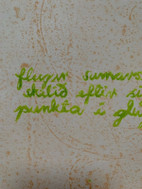 flugur sumars
skilið eftir si
punkta í glu